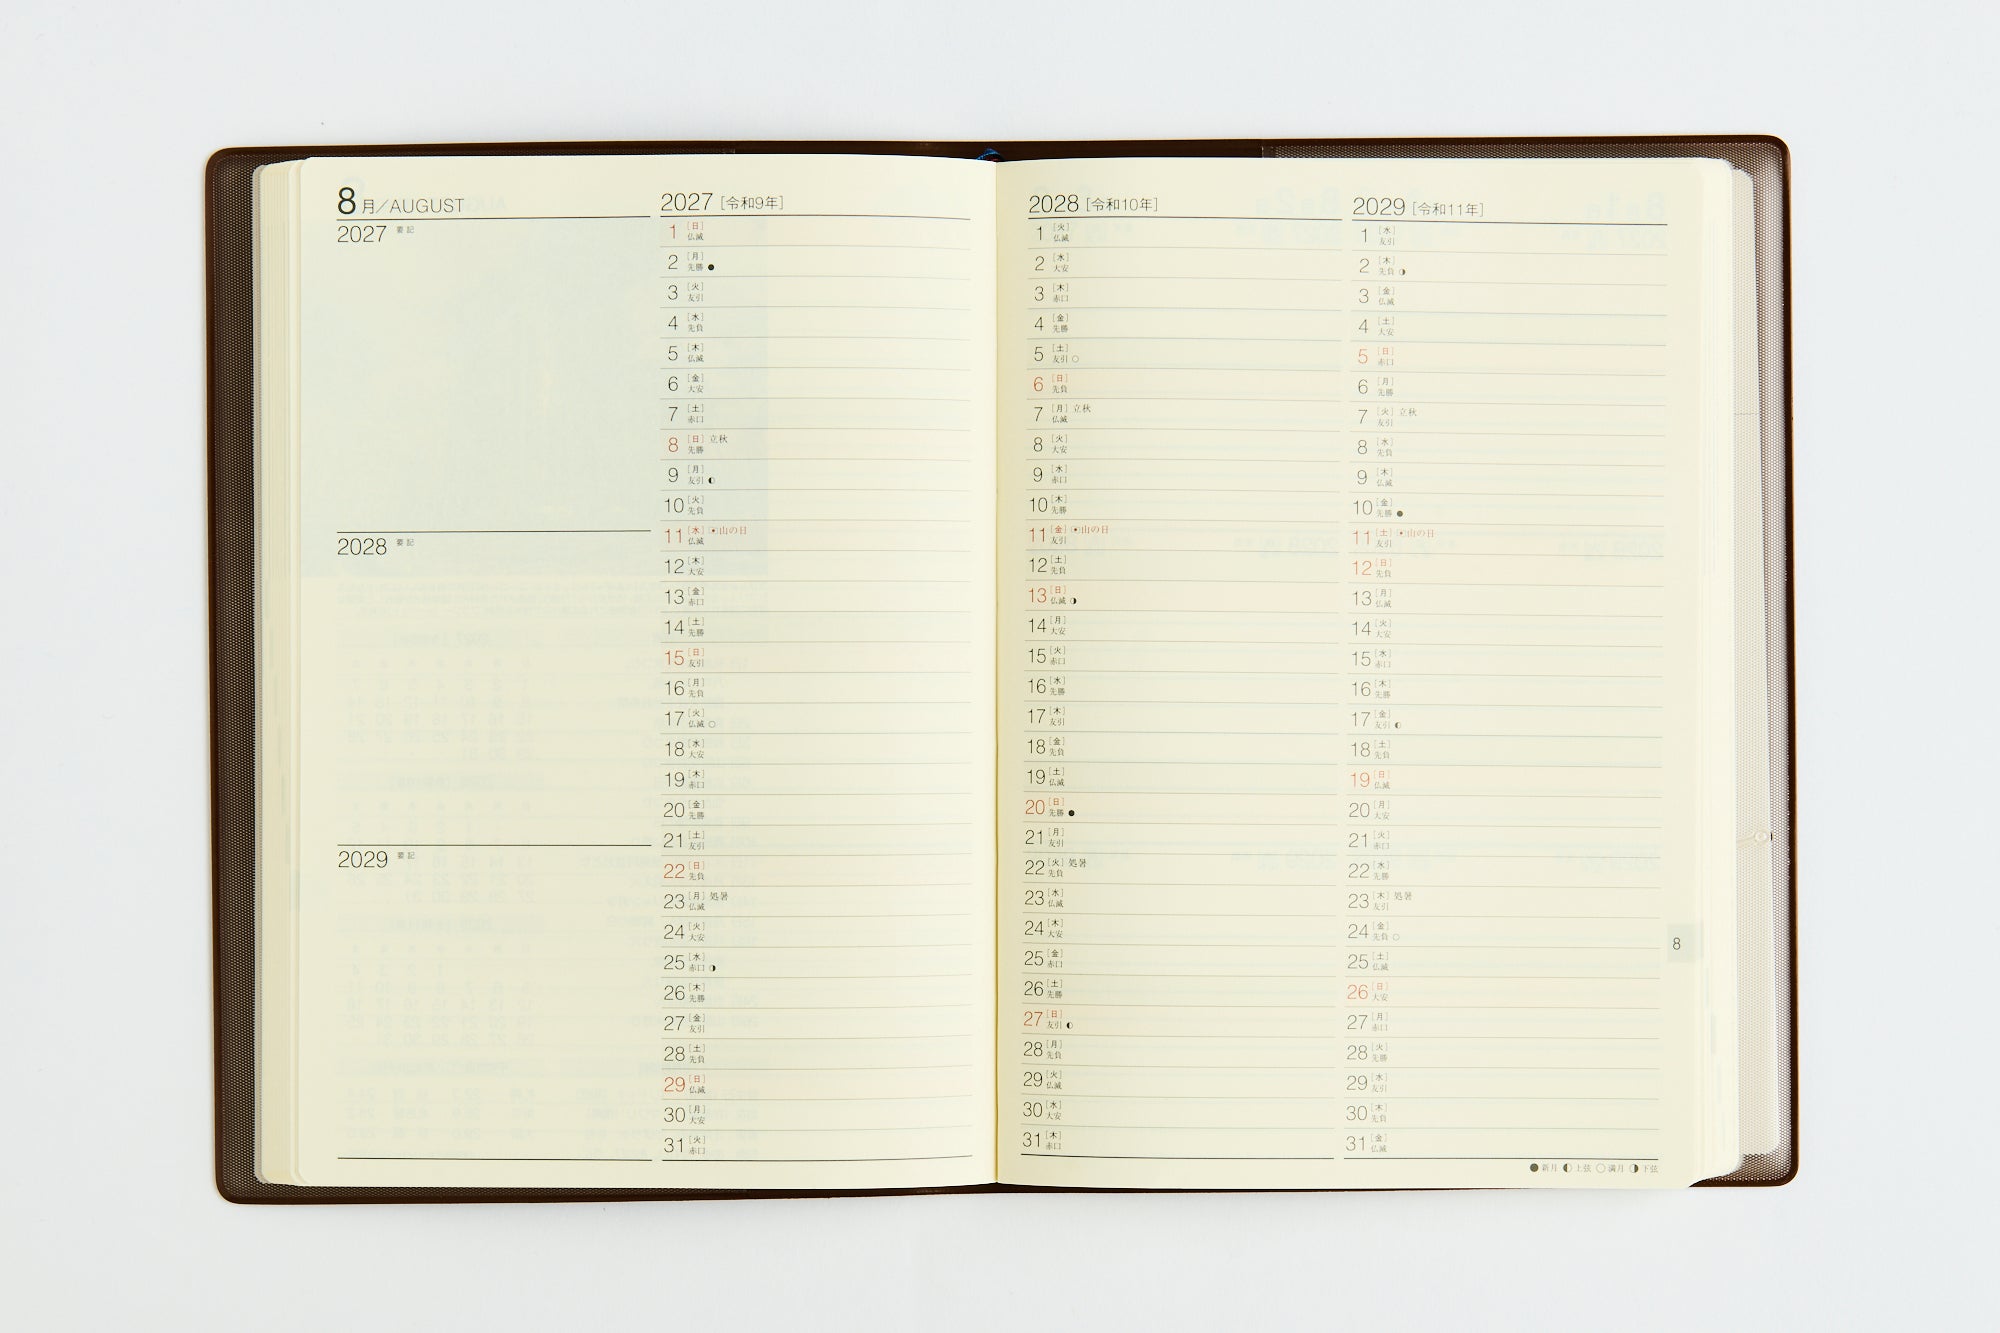 8月/AUGUST
2027 要記
2028 要記
2029 要記
2027 [令和9年]
1 [日] 仏滅
2 [月] 先勝 ●
3 [火] 友引
4 [水] 先負
5 [木] 仏滅
6 [金] 大安
7 [土] 赤口
8 [日] 立秋 先勝
9 [月] 友引 ◐
10 [火] 先負
11 [水] 山の日 仏滅
12 [木] 大安
13 [金] 赤口
14 [土] 先勝
15 [日] 友引
16 [月] 先負
17 [火] 仏滅 ○
18 [水] 大安
19 [木] 赤口
20 [金] 先勝
21 [土] 友引
22 [日] 先負
23 [月] 処暑 仏滅
24 [火] 大安
25 [水] 赤口 ◑
26 [木] 先勝
27 [金] 友引
28 [土] 先負
29 [日] 仏滅
30 [月] 大安
31 [火] 赤口
2028 [令和10年]
1 [火] 仏滅
2 [水] 大安
3 [木] 赤口
4 [金] 先勝
5 [土] 友引 ○
6 [日] 先負
7 [月] 立秋 仏滅
8 [火] 大安
9 [水] 赤口
10 [木] 先勝
11 [金] 山の日 友引
12 [土] 先負
13 [日] 仏滅 ◑
14 [月] 大安
15 [火] 赤口
16 [水] 先勝
17 [木] 友引
18 [金] 先負
19 [土] 仏滅
20 [日] 先勝 ●
21 [月] 友引
22 [火] 処暑 先負
23 [水] 仏滅
24 [木] 大安
25 [金] 赤口
26 [土] 先勝
27 [日] 友引 ◐
28 [月] 先負
29 [火] 仏滅
30 [水] 大安
31 [木] 赤口
2029 [令和11年]
1 [水] 友引
2 [木] 先負 ◑
3 [金] 仏滅
4 [土] 大安
5 [日] 赤口
6 [月] 先勝
7 [火] 立秋 友引
8 [水] 先負
9 [木] 仏滅
10 [金] 先勝 ●
11 [土] 山の日 友引
12 [日] 先負
13 [月] 仏滅
14 [火] 大安
15 [水] 赤口
16 [木] 先勝
17 [金] 友引 ◐
18 [土] 先負
19 [日] 仏滅
20 [月] 大安
21 [火] 赤口
22 [水] 先勝
23 [木] 処暑 友引
24 [金] 先負 ○
25 [土] 仏滅
26 [日] 大安
27 [月] 赤口
28 [火] 先勝
29 [水] 友引
30 [木] 先負
31 [金] 仏滅
8
●新月 ◐上弦 ○満月 ◑下弦